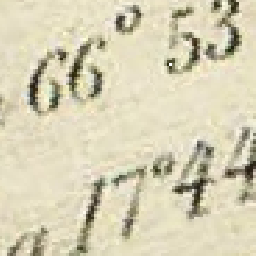 66° 53
a 17° 44